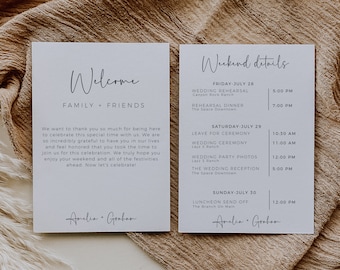 Welcome
FAMILY + FRIENDS
We want to thank you so much for being here
to celebrate this special time with us. We are
so incredibly grateful to have you in our lives
and feel honored that you took the time to
join us for this celebration. We truly hope you
enjoy your weekend and all of the festivities
ahead. Now let's celebrate!
Amelia + Graham
Weekend details
FRIDAY-JULY 28
WEDDING REHEARSAL
5:00 PM
REHEARSAL DINNER
7:00 PM
SATURDAY-JULY 29
LEAVE FOR CEREMONY
10:30 AM
WEDDING CEREMONY
11:00 AM
WEDDING PARTY PHOTOS
12:00 PM
THE WEDDING RECEPTION
5:00 PM
SUNDAY-JULY 30
LUNCHEON SEND OFF
12:00 PM
Amelia + Graham